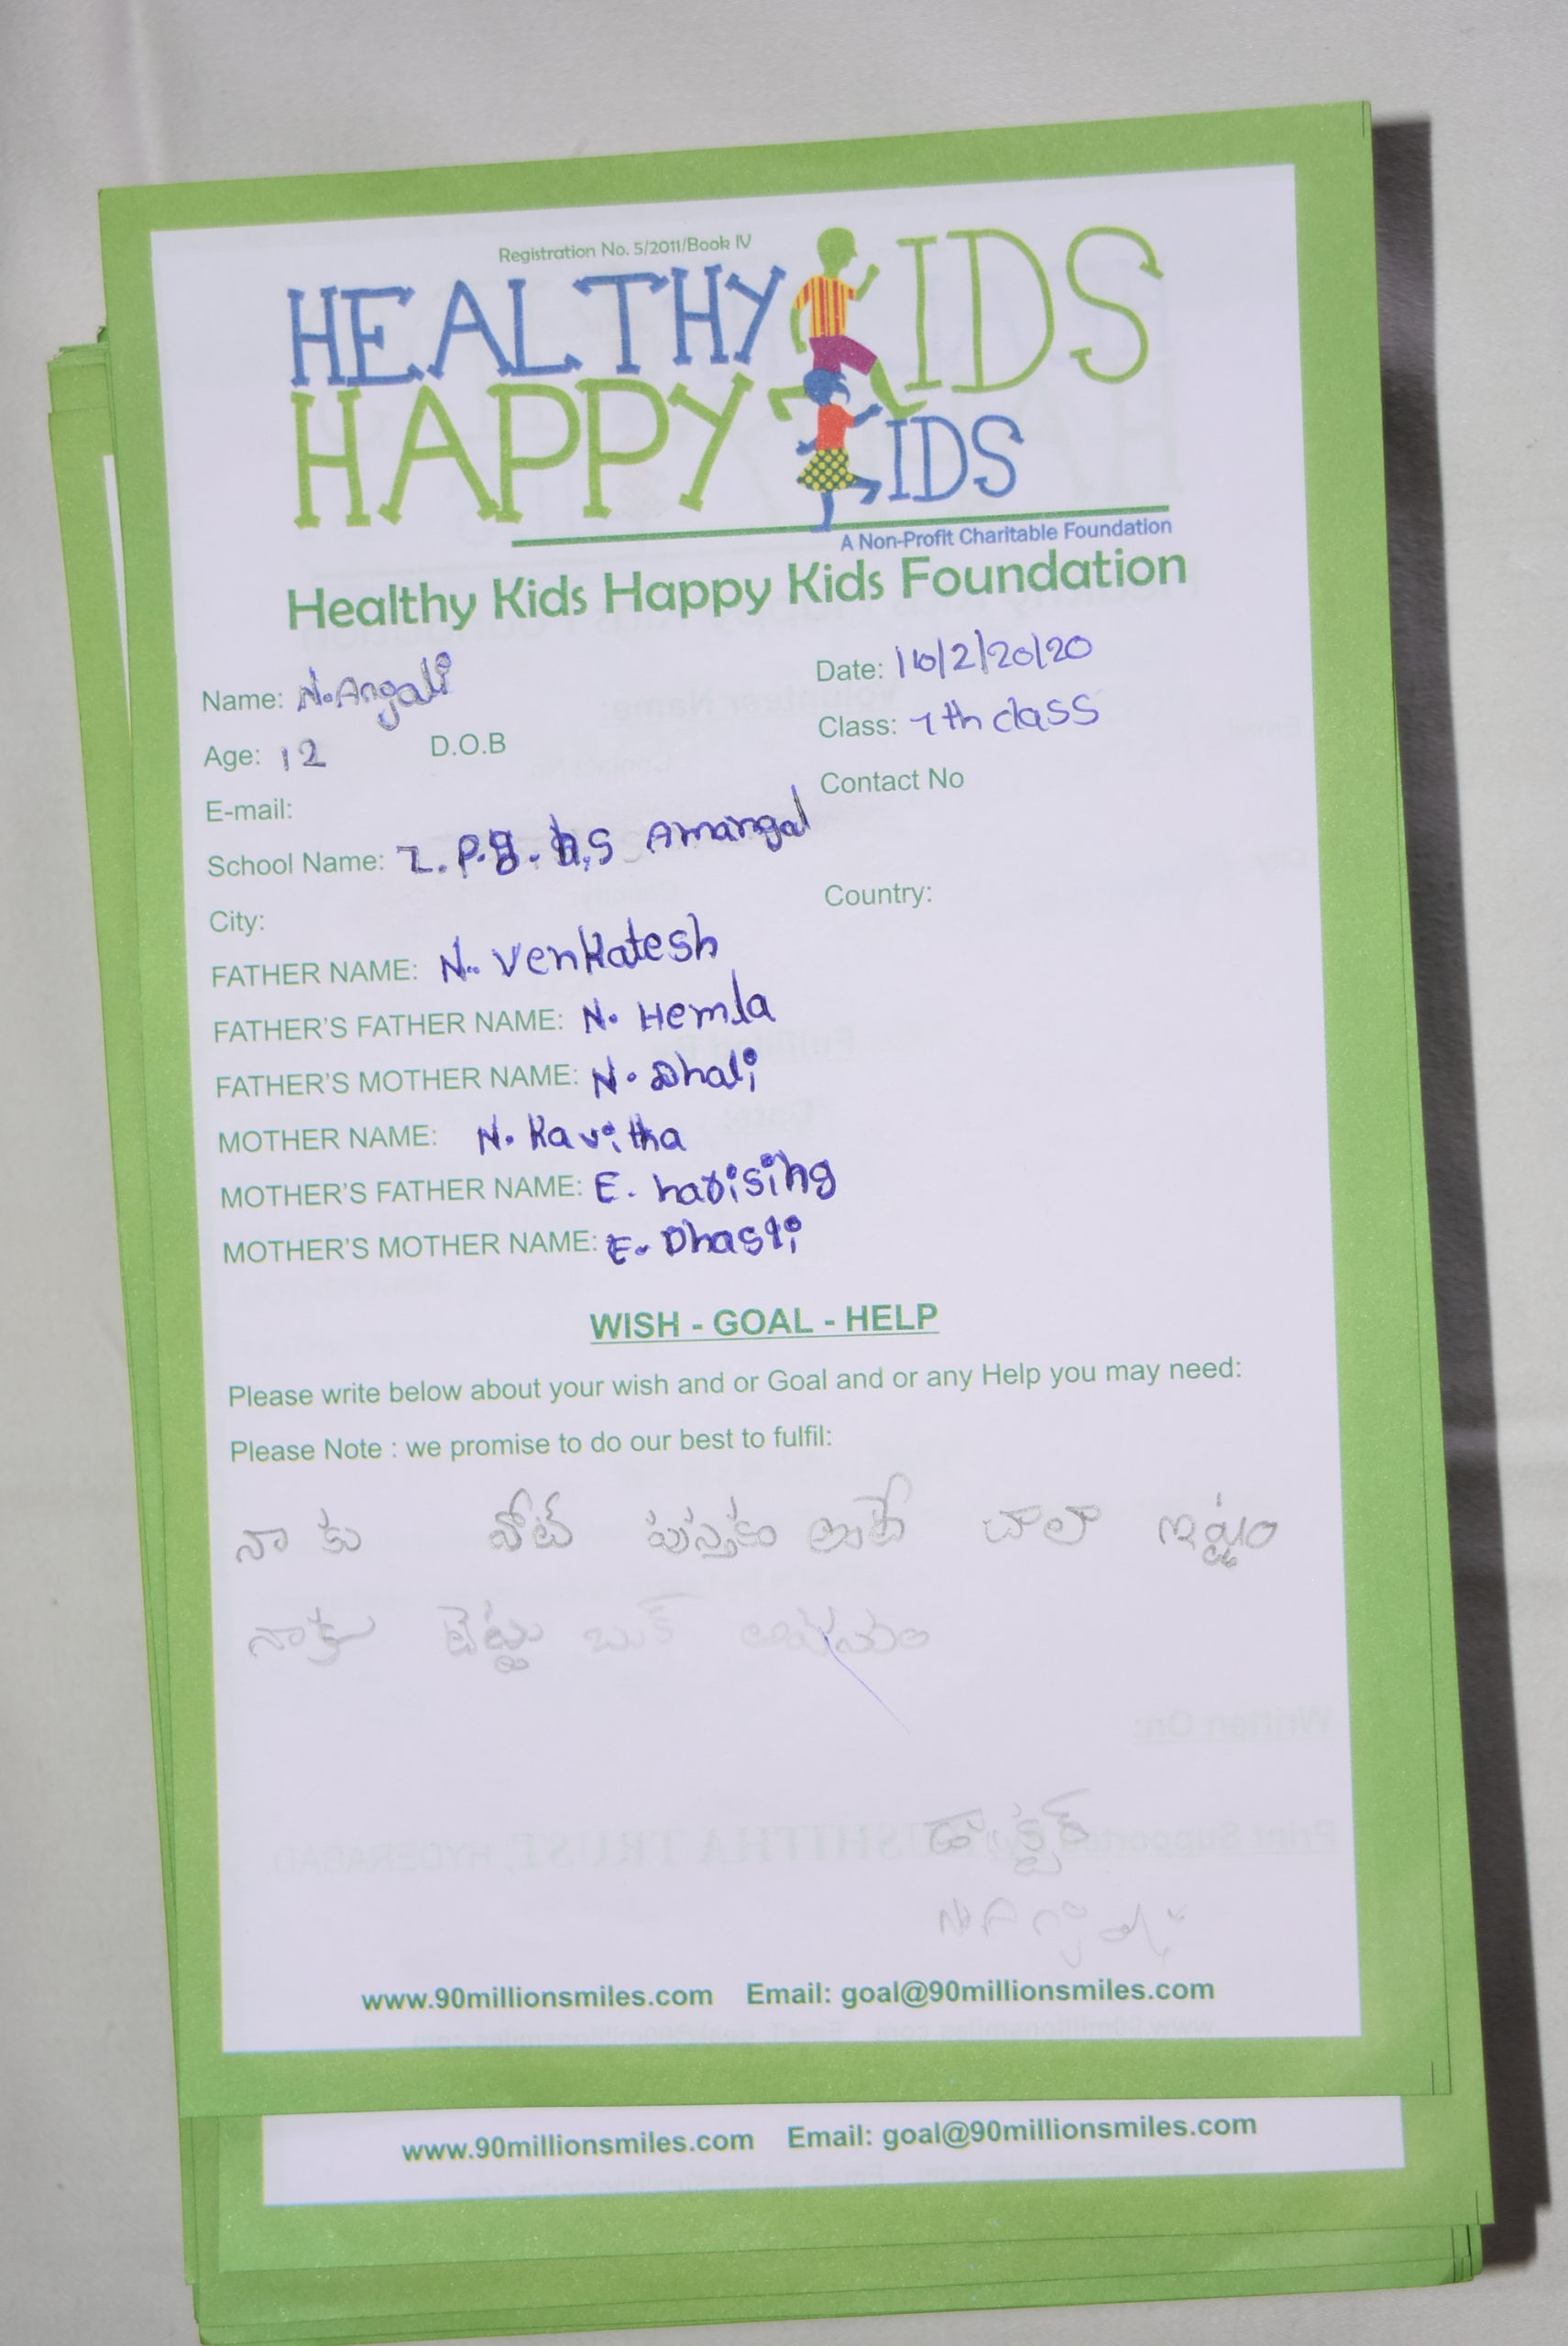 Registration No. 5/2011/Book IV
HEALTHY KIDS
HAPPY KIDS
A Non-Profit Charitable Foundation
Healthy Kids Happy Kids Foundation
Name: N. Angali Date:
Age: 12 D.O.B Class: 7th class
E-mail: Contact No
School Name: Z.P. H.S Amangal
City: Country:
FATHER NAME: N. Venkatesh
FATHER'S FATHER NAME: N. Hemla
FATHER'S MOTHER NAME: N. Dhali
MOTHER NAME: N. Kavitha
MOTHER'S FATHER NAME: E. harising
MOTHER'S MOTHER NAME: E. Dhasli
WISH - GOAL - HELP
Please write below about your wish and or Goal and or any Help you may need:
Please Note : we promise to do our best to fulfil:
నా కు నోట్ పుస్తకం అంటే చాలా ఇష్టం
నాకు బుక్
డాక్టర్
www.90millionsmiles.com Email: goal@90millionsmiles.com
www.90millionsmiles.com Email: goal@90millionsmiles.com